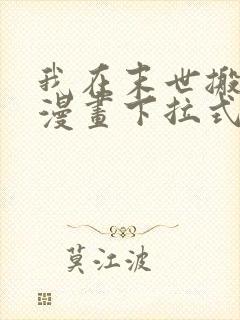 我在末世搬
漫畫下拉式
莫江波